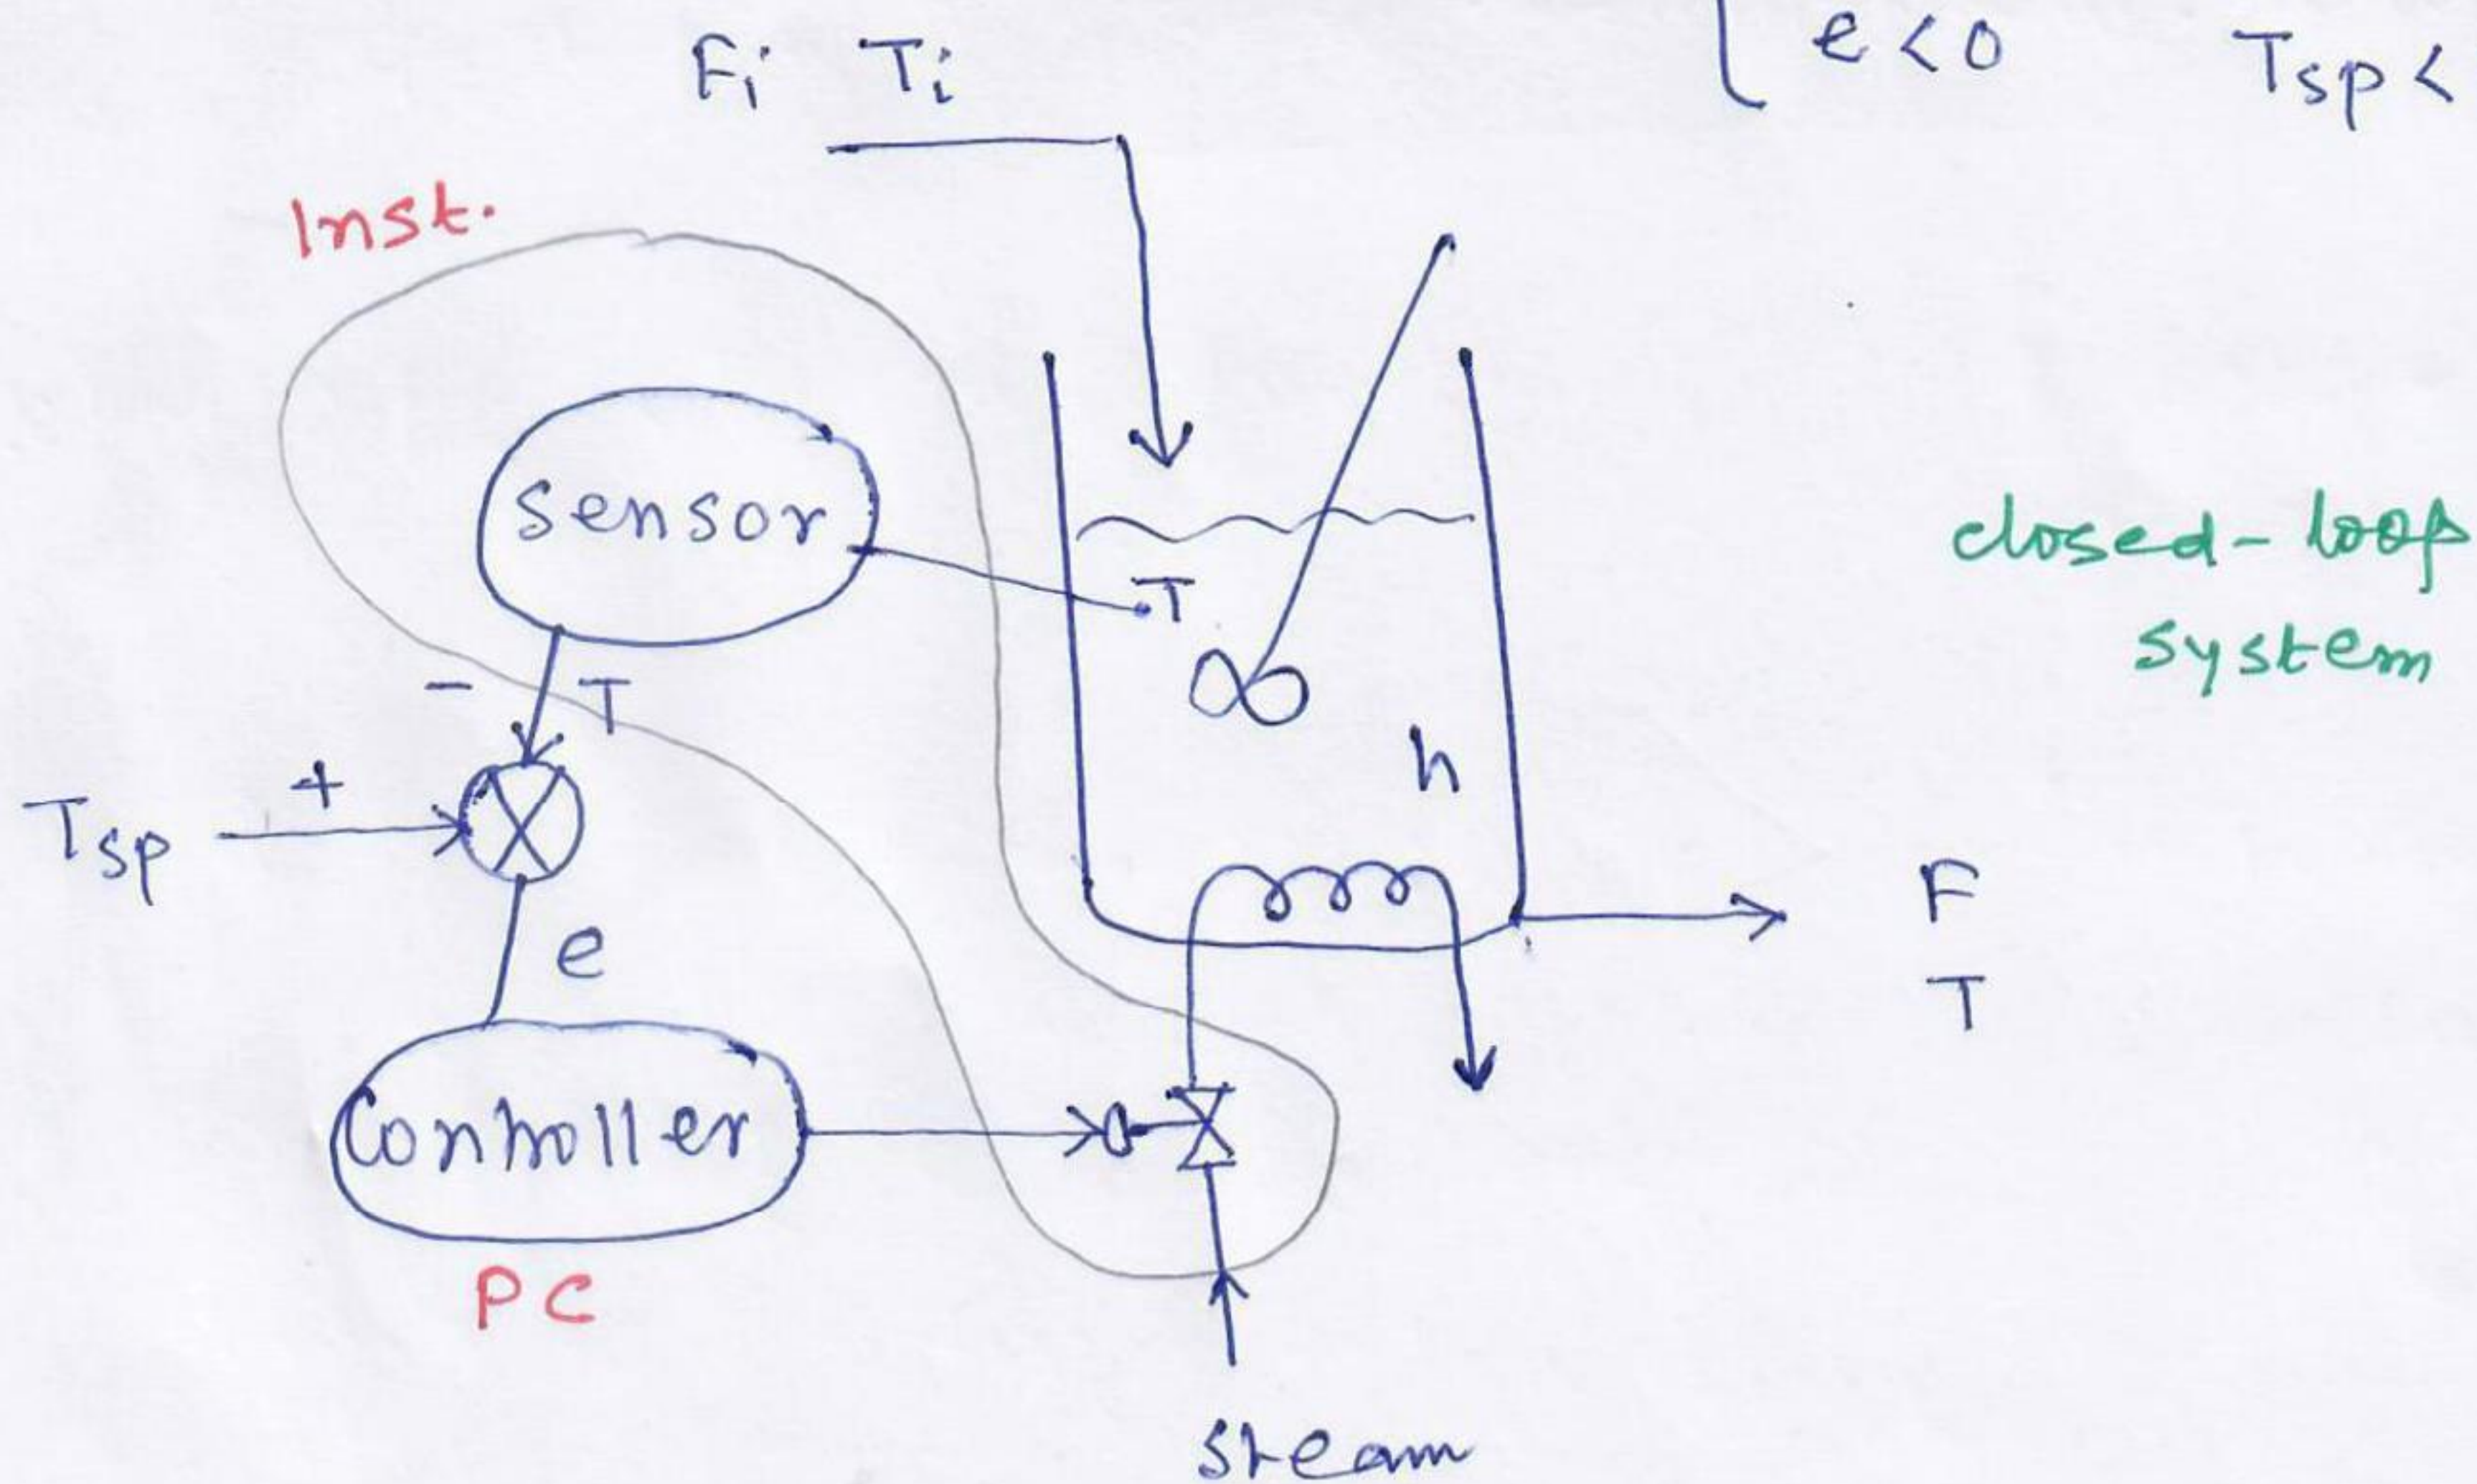 e < 0 Tsp <
Fi Ti
Inst.
Sensor
T
closed-loop
system
- T
h
+
Tsp
e
F
T
Controller
PC
Steam